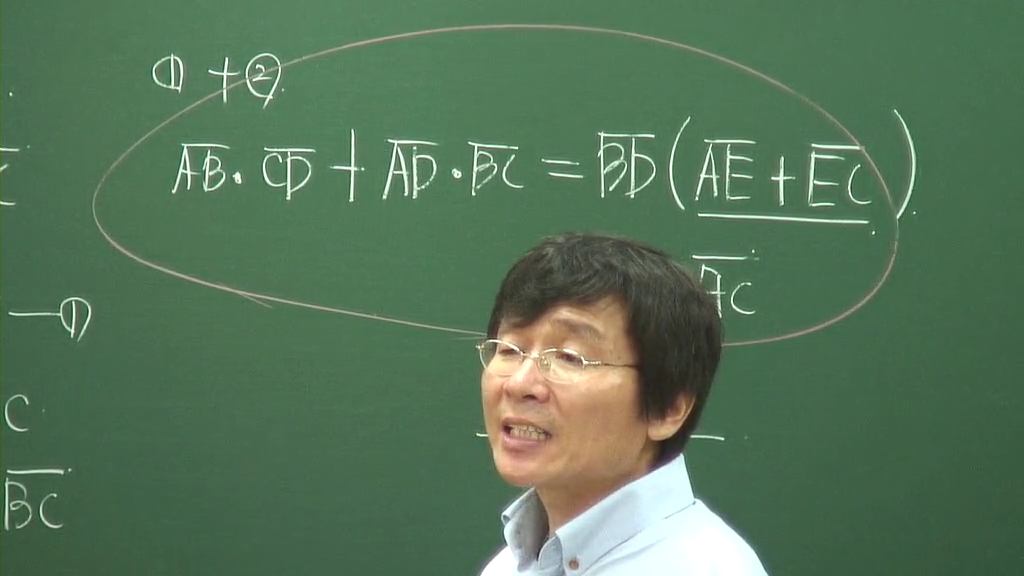 ① + ②
A̅B̅ · C̅D̅ + A̅D̅ · B̅C̅ = B̅D̅ ( A̅E̅ + E̅C̅ )
A̅C̅
—①
C
B̅C̅